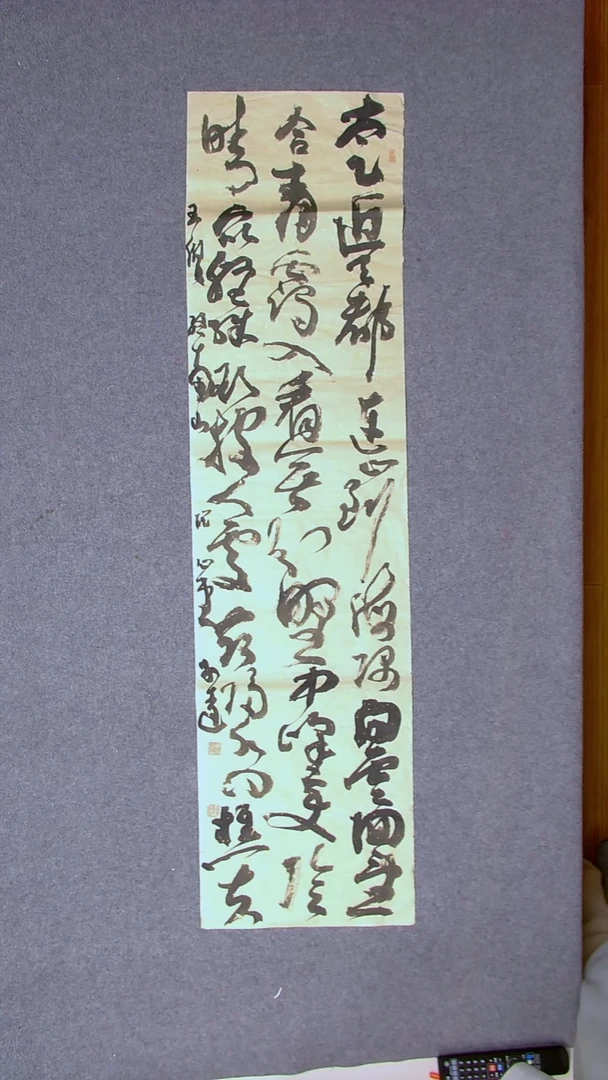 太乙近天都連山到海隅白雲回望
合青靄入看無分野中峰變陰
晴衆壑殊欲投人處宿隔水問樵夫
王維終南山